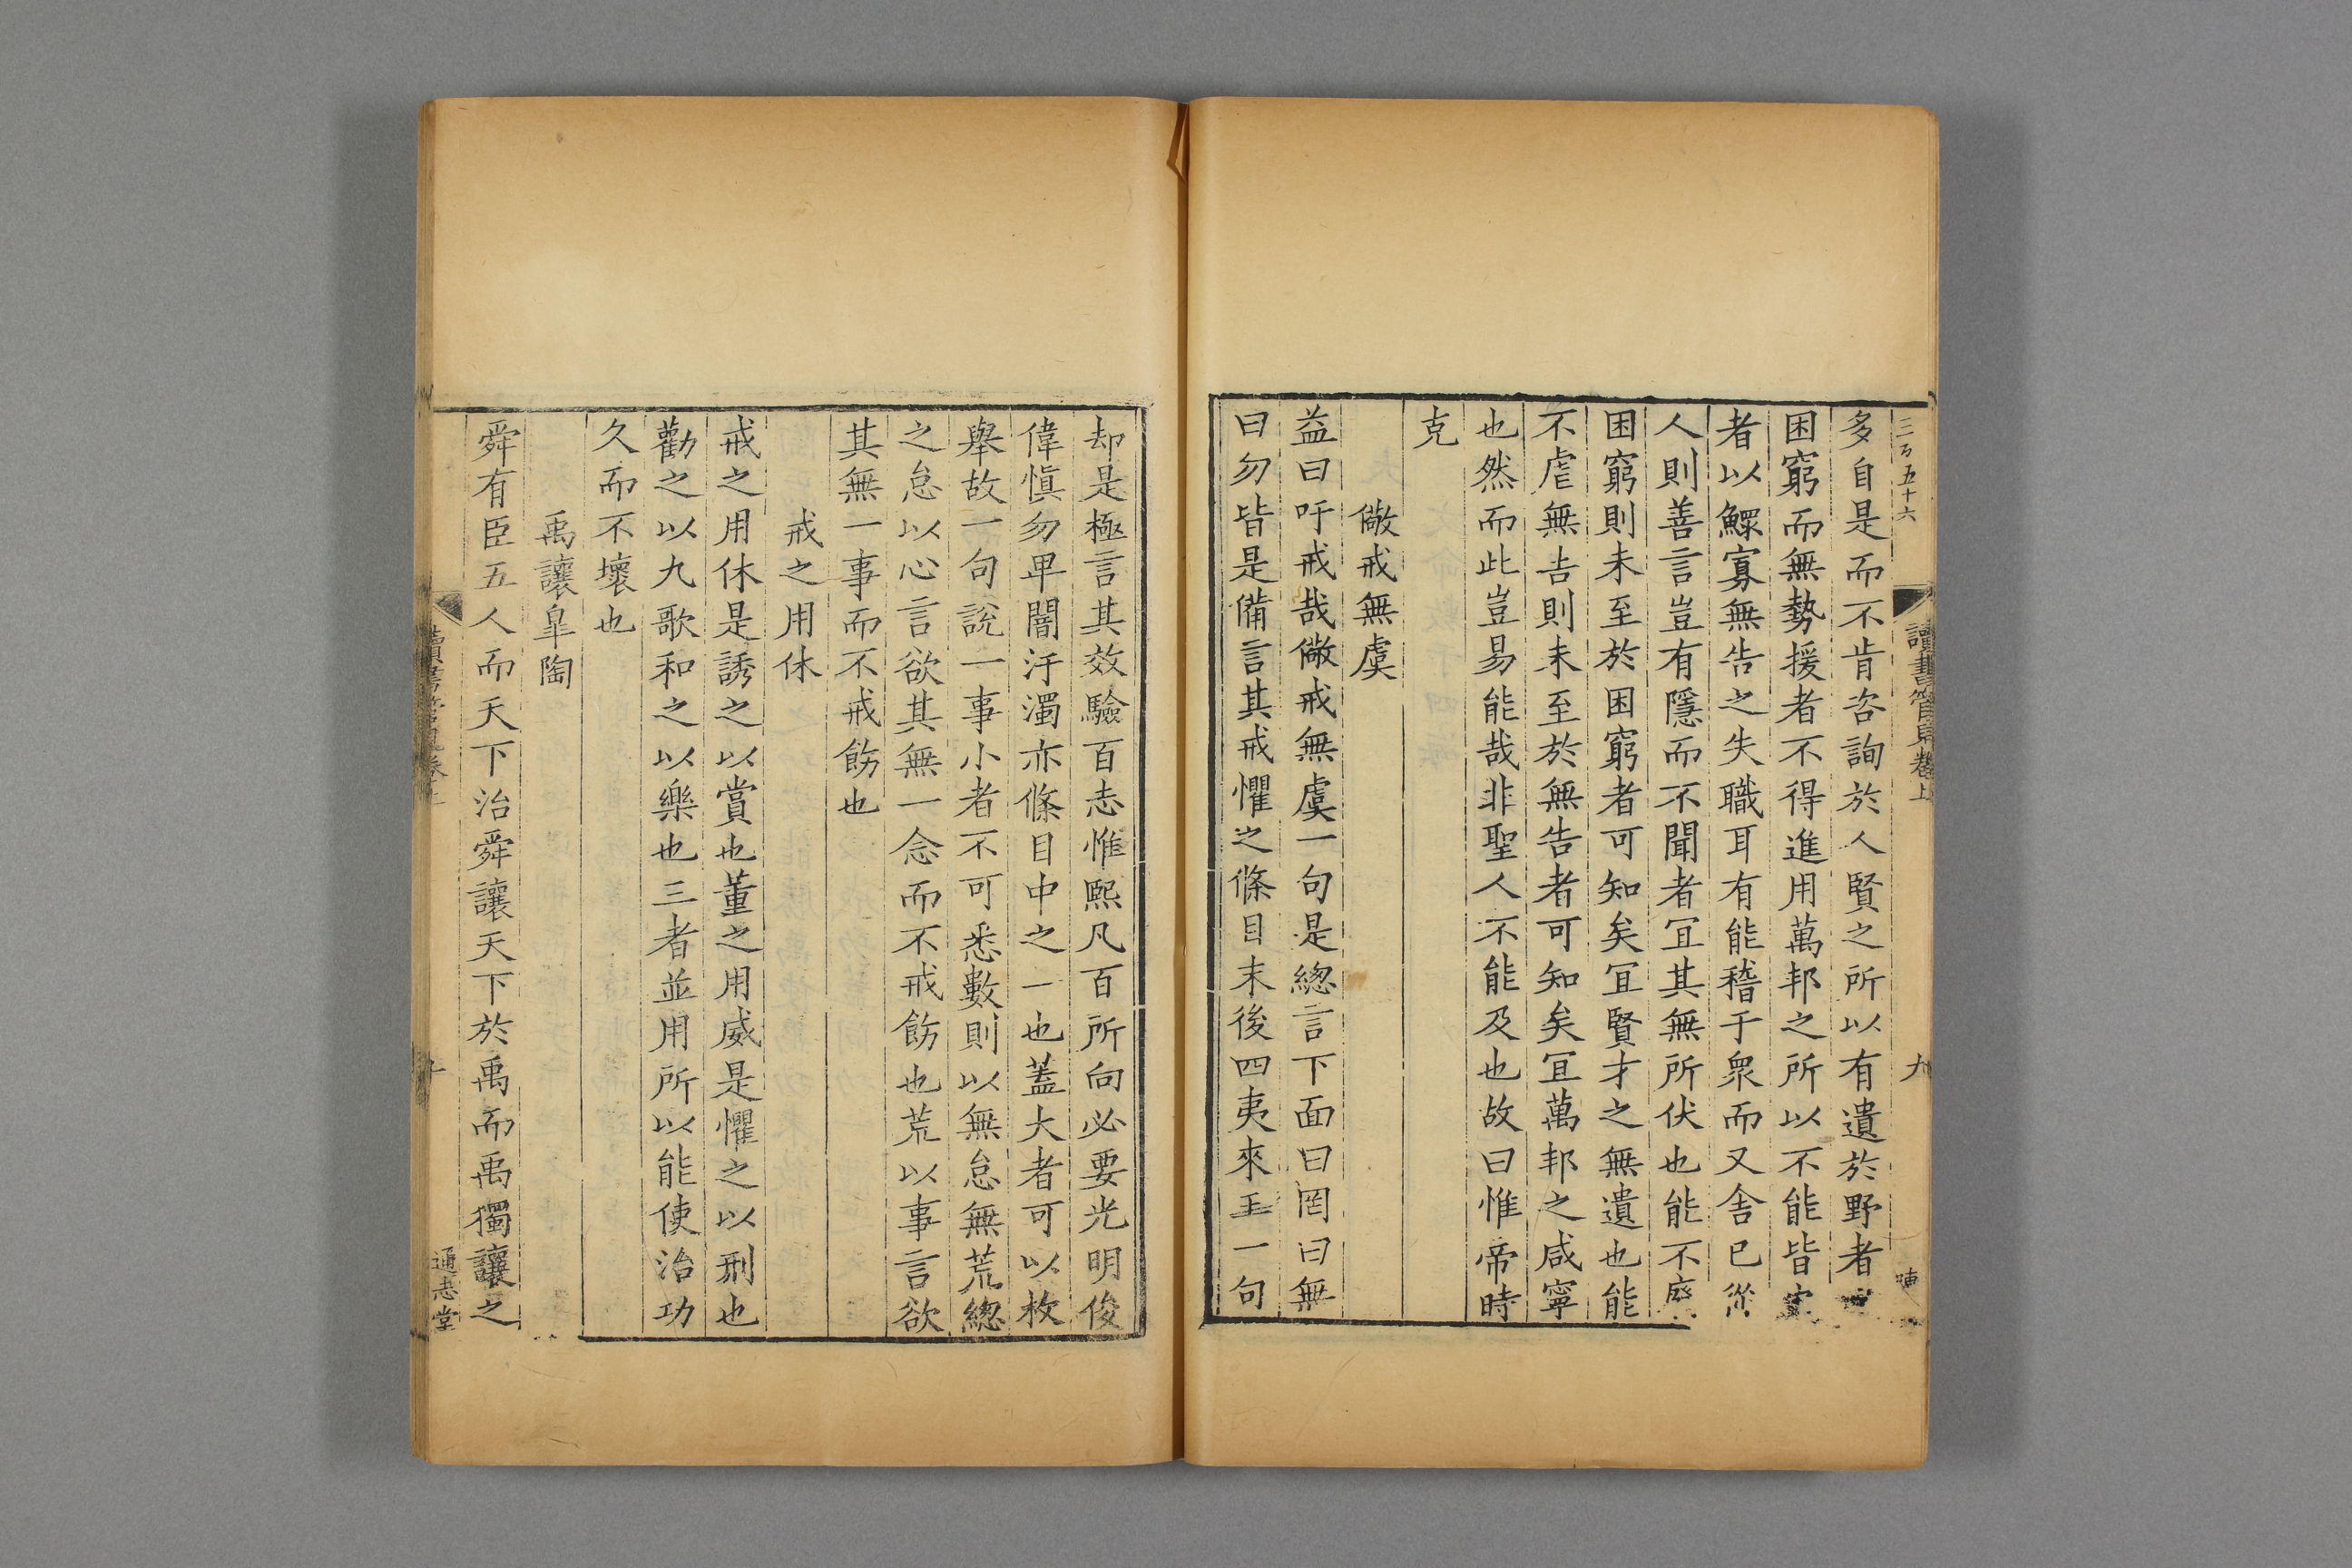 三百五十六
讀書管見卷上
九
多自是而不肯咨詢於人賢之所以有遺於野者
困窮而無勢援者不得進用萬邦之所以不能皆
者以鰥寡無告之失職耳有能稽于衆而又舍已從
人則善言豈有隱而不聞者宜其無所伏也能不
困窮則未至於困窮者可知矣宜賢才之無遺也能
不虐無告則未至於無告者可知矣宜萬邦之咸寧
也然而此豈易能哉非聖人不能及也故曰惟帝時
克
儆戒無虞
益曰吁戒哉儆戒無虞一句是總言下面曰罔曰無
曰勿皆是備言其戒懼之條目末後四夷來王一句
却是極言其效驗百志惟熙凡百所向必要光明俊
偉愼勿卑闇汙濁亦條目中之一也蓋大者可以枚
舉故一句說一事小者不可悉數則以無怠無荒總
之怠以心言欲其無一念而不戒飭也荒以事言欲
其無一事而不戒飭也
戒之用休
戒之用休是誘之以賞也董之用威是懼之以刑也
勸之以九歌和之以樂也三者並用所以能使治功
久而不壞也
禹讓皐陶
舜有臣五人而天下治舜讓天下於禹而禹獨讓之
讀書管見卷上
通志堂